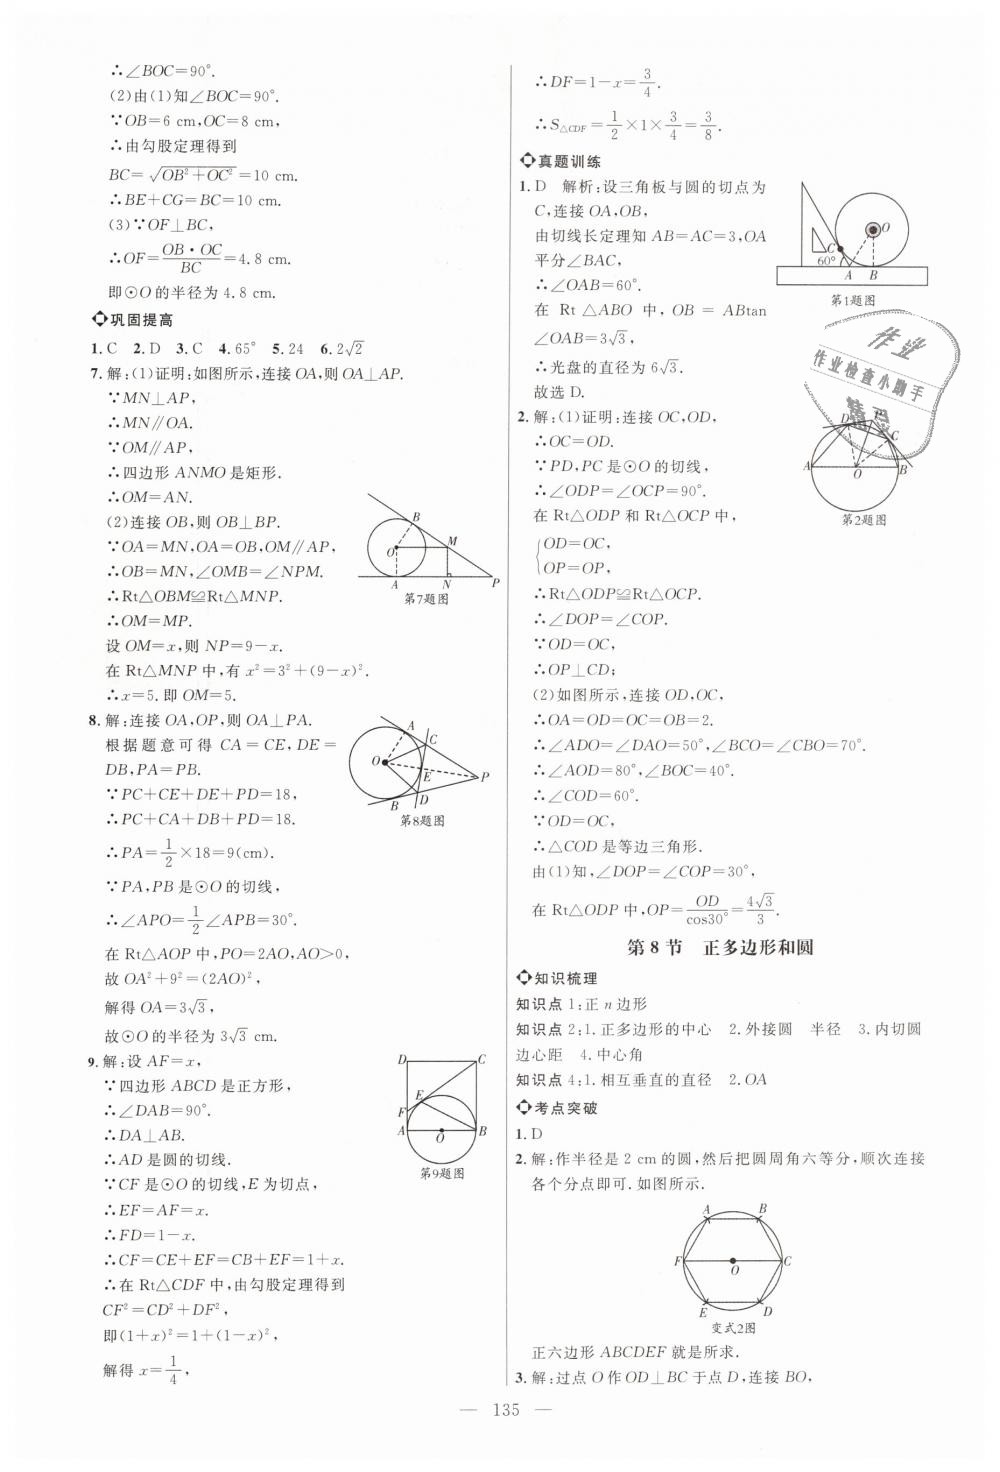 ∴∠BOC=90°.
(2)由(1)知∠BOC=90°.
∵OB=6 cm,OC=8 cm,
∴由勾股定理得到
BC=√(OB²+OC²)=10 cm.
∴BE+CG=BC=10 cm.
(3)∵OF⊥BC,
∴OF=OB·OC/BC=4.8 cm.
即⊙O的半径为4.8 cm.
巩固提高
1.C 2.D 3.C 4.65° 5.24 6.2√2
7.解:(1)证明:如图所示,连接OA,则OA⊥AP.
∵MN⊥AP,
∴MN∥OA.
∵OM∥AP,
∴四边形ANMO是矩形.
∴OM=AN.
(2)连接OB,则OB⊥BP.
∵OA=MN,OA=OB,OM∥AP,
∴OB=MN,∠OMB=∠NPM.
∴Rt△OBM≌Rt△MNP.
∴OM=MP.
设OM=x,则NP=9-x.
在Rt△MNP中,有x²=3²+(9-x)².
∴x=5.即OM=5.
B
O
M
A
N
P
第7题图
8.解:连接OA,OP,则OA⊥PA.
根据题意可得CA=CE,DE=
DB,PA=PB.
∵PC+CE+DE+PD=18,
∴PC+CA+DB+PD=18.
∴PA=1/2×18=9(cm).
∵PA,PB是⊙O的切线,
∴∠APO=1/2∠APB=30°.
在Rt△AOP中,PO=2AO,AO>0,
故OA²+9²=(2AO)²,
解得OA=3√3,
故⊙O的半径为3√3 cm.
A
C
O
E
P
D
B
第8题图
9.解:设AF=x,
∵四边形ABCD是正方形,
∴∠DAB=90°.
∴DA⊥AB.
∴AD是圆的切线.
∵CF是⊙O的切线,E为切点,
∴EF=AF=x.
∴FD=1-x.
∴CF=CE+EF=CB+EF=1+x.
∴在Rt△CDF中,由勾股定理得到
CF²=CD²+DF²,
即(1+x)²=1+(1-x)²,
解得x=1/4,
D
C
E
F
A
O
B
第9题图
∴DF=1-x=3/4.
∴S△CDF=1/2×1×3/4=3/8.
真题训练
1.D 解析:设三角板与圆的切点为
C,连接OA,OB,
由切线长定理知AB=AC=3,OA
平分∠BAC,
∴∠OAB=60°.
在 Rt △ABO 中, OB = ABtan
∠OAB=3√3,
∴光盘的直径为6√3.
故选D.
O
C
60°
A
B
第1题图
作业
作业检查小助手
2.解:(1)证明:连接OC,OD,
∴OC=OD.
∵PD,PC是⊙O的切线,
∴∠ODP=∠OCP=90°.
在Rt△ODP和Rt△OCP中,
OD=OC,
OP=OP,
∴Rt△ODP≌Rt△OCP.
∴∠DOP=∠COP.
∵OD=OC,
∴OP⊥CD;
(2)如图所示,连接OD,OC,
∴OA=OD=OC=OB=2.
∴∠ADO=∠DAO=50°,∠BCO=∠CBO=70°.
∴∠AOD=80°,∠BOC=40°.
∴∠COD=60°.
∵OD=OC,
∴△COD是等边三角形.
由(1)知,∠DOP=∠COP=30°,
在Rt△ODP中,OP=OD/cos30°=4√3/3.
D
P
C
A
O
B
第2题图
第8节 正多边形和圆
知识梳理
知识点1:正n边形
知识点2:1.正多边形的中心 2.外接圆 半径 3.内切圆
边心距 4.中心角
知识点4:1.相互垂直的直径 2.OA
考点突破
1.D
2.解:作半径是2 cm的圆,然后把圆周角六等分,顺次连接
各个分点即可.如图所示.
A
B
F
O
C
E
D
变式2图
正六边形ABCDEF就是所求.
3.解:过点O作OD⊥BC于点D,连接BO,
— 135 —